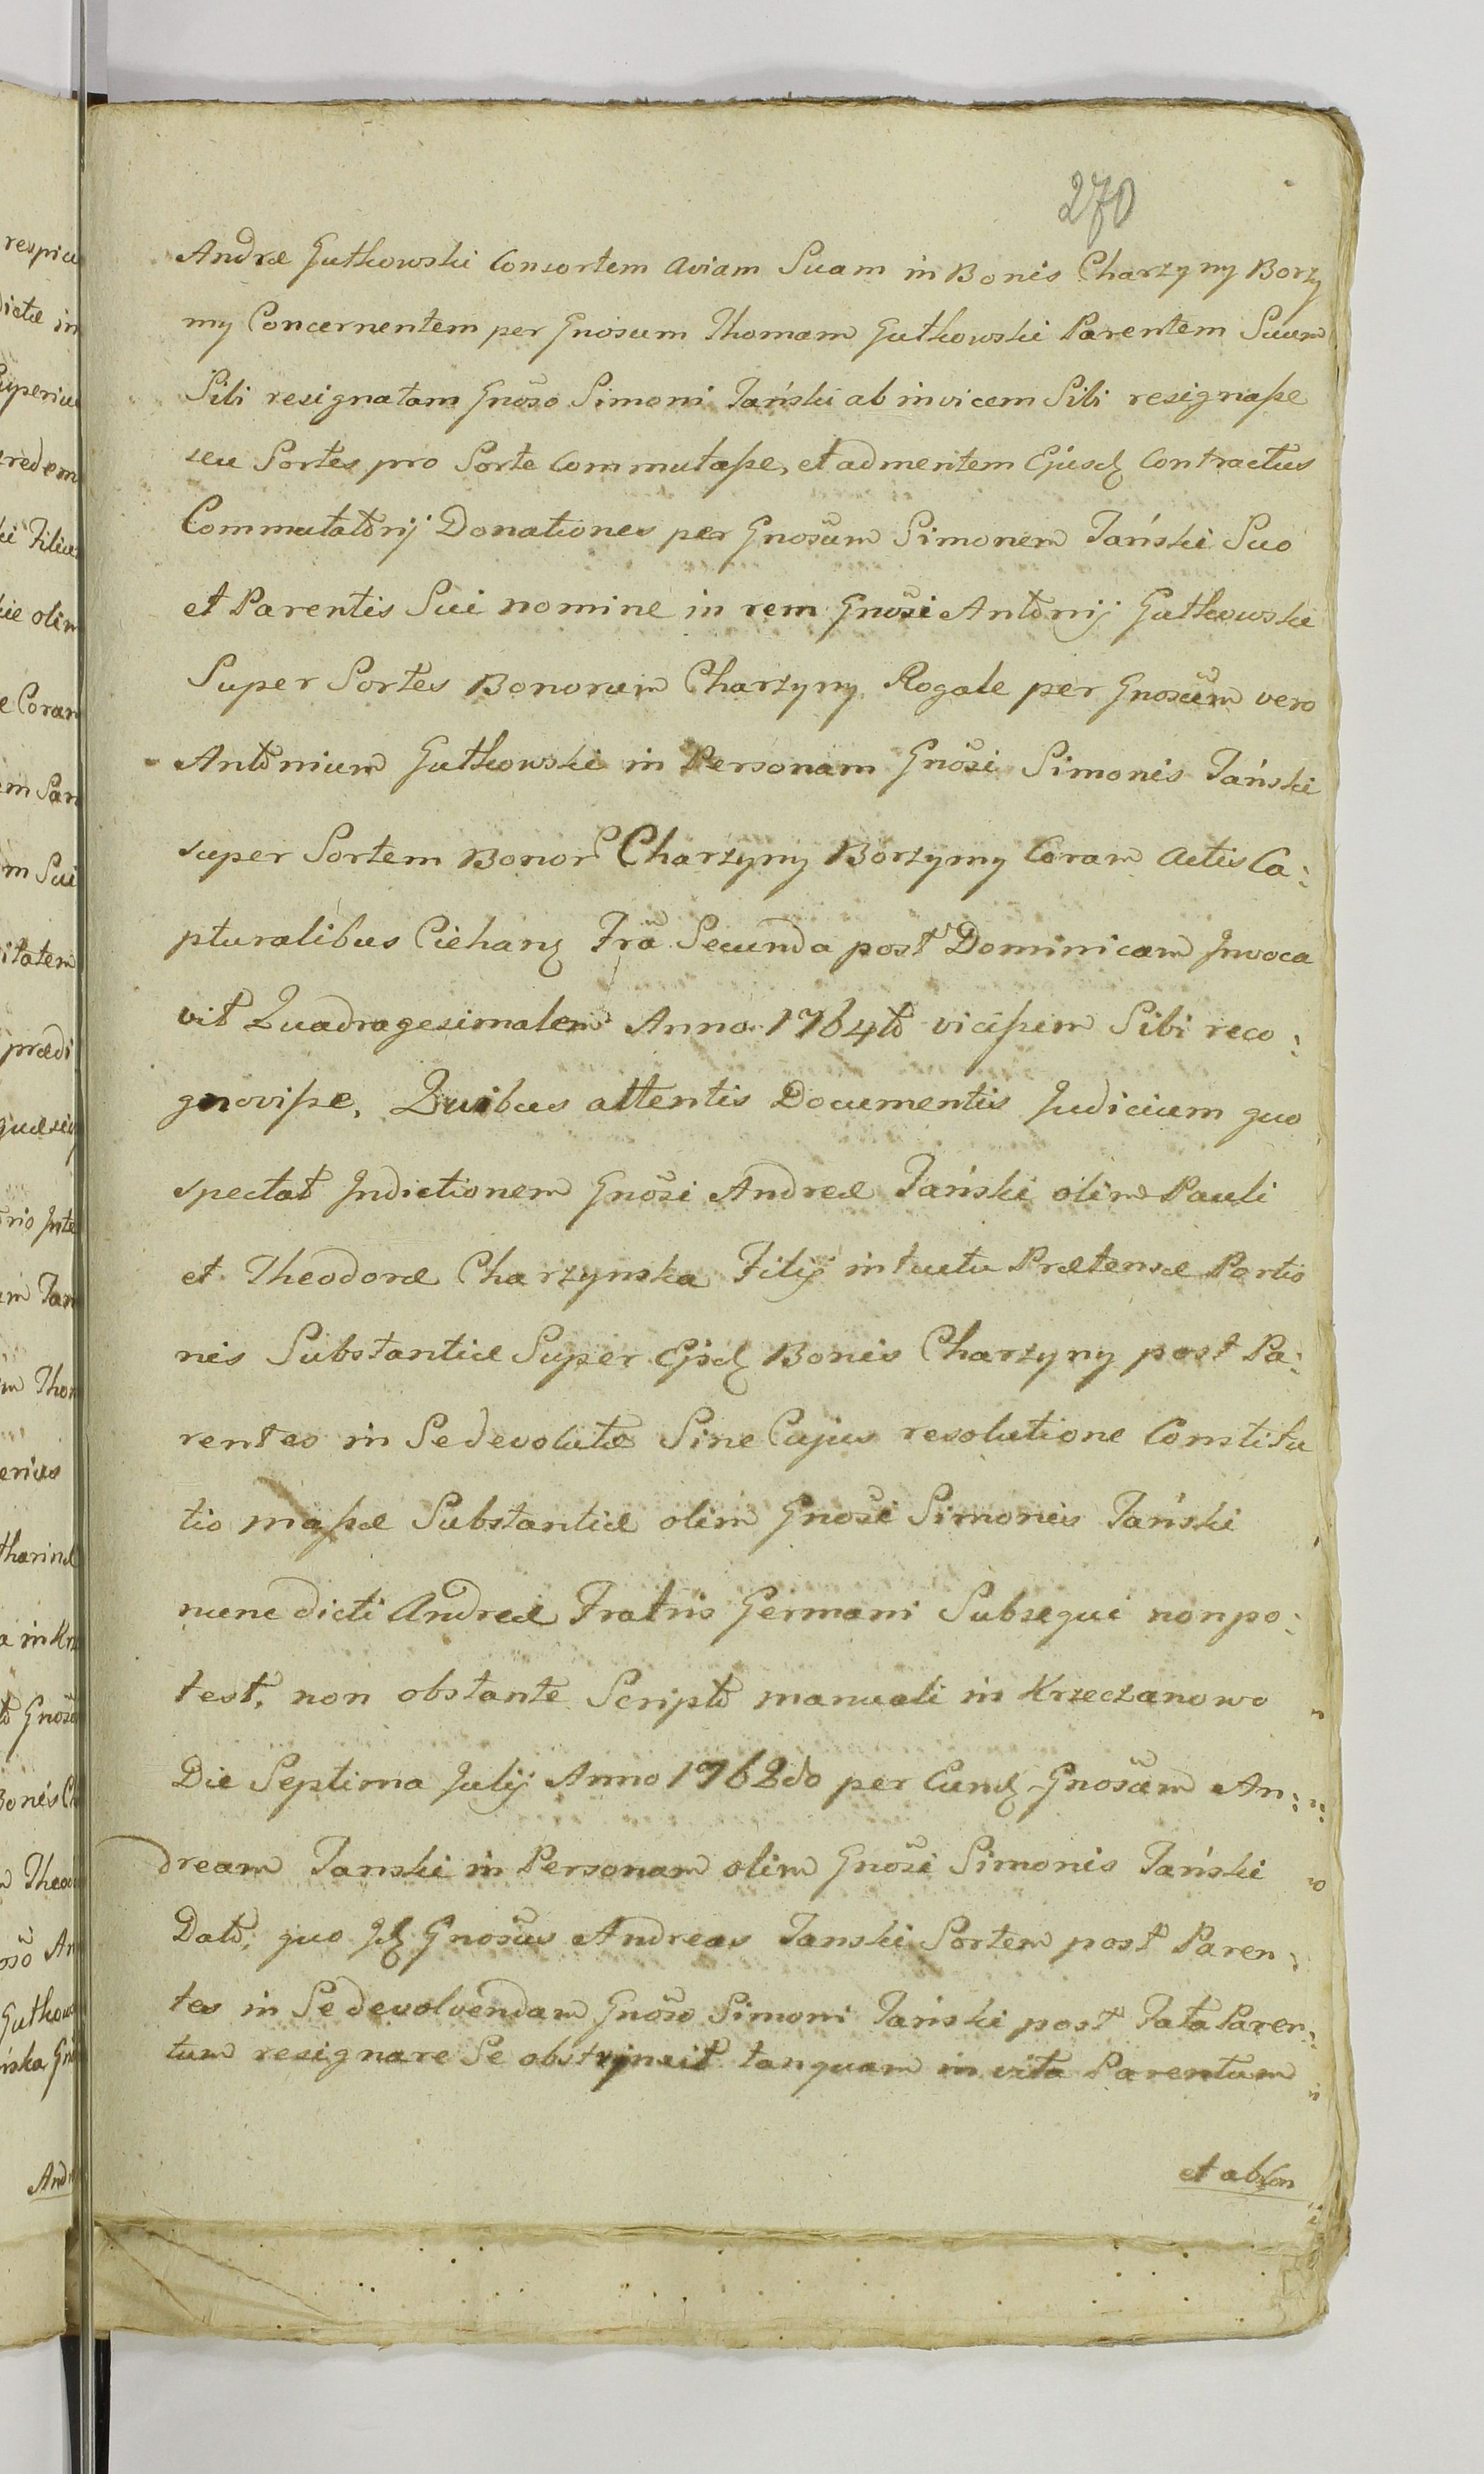 270
Andræ Gutkowski Consortem Aviam Suam in Bonis Charzyny Borzy
my Concernentem per Gnosum Thomam Gutkowski Parentem Suum
Sibi resignatam Gnoso Simoni Tański ab invicem Sibi resignaſse
seu Sortes pro Sorte Commutaſse, et ad mentem Ejusd Contractus
Commutatorij Donationes per Gnosum Simonem Tański Suo
et Parentis Sui nomine in rem Gnosi Antonij Gutkowski
Super Sortes Bonorum Charzyny Rogale per Gnosum vero
Antonium Gutkowski in Personam Gnosi Simonis Tański
super Sortem Bonor Charzyny Borzymy Coram Actis Ca:
pturalibus Ciehan Fra Secunda post Dominicam Invoca
vit Quadragesimalem Anno 1764to viciſsem Sibi reco:
gnoviſse, Quibus attentis Documentis Judicium quo
spectat Indictionem Gnosi Andreæ Tański olim Pauli
et Theodoræ Charzynska Filij intuitu Prætensæ Portio
nis Substantiæ Super Ejsd Bonis Charzyny post Pa:
rentes in Se devolutæ Sine Cujus resolutione Constitu
tio maſsæ Substantiæ olim Gnosi Simonis Tański
nunc dicti Andreæ Fratris Germani Subsequi non po:
test, non obstante Scripto manuali in Krzeczanowo
Die Septima Julij Anno 1762do per Eund Gnosum An:
dream Tanski in Personam olim Gnosi Simonis Tański
Dato, quo Id Gnosus Andreas Tanski Sortem post Paren:
tes in Se devolvendam Gnoso Simoni Tański post Fata Paren:
tum resignare Se obstrinxit tanquam in vita Parentum
et ab Con